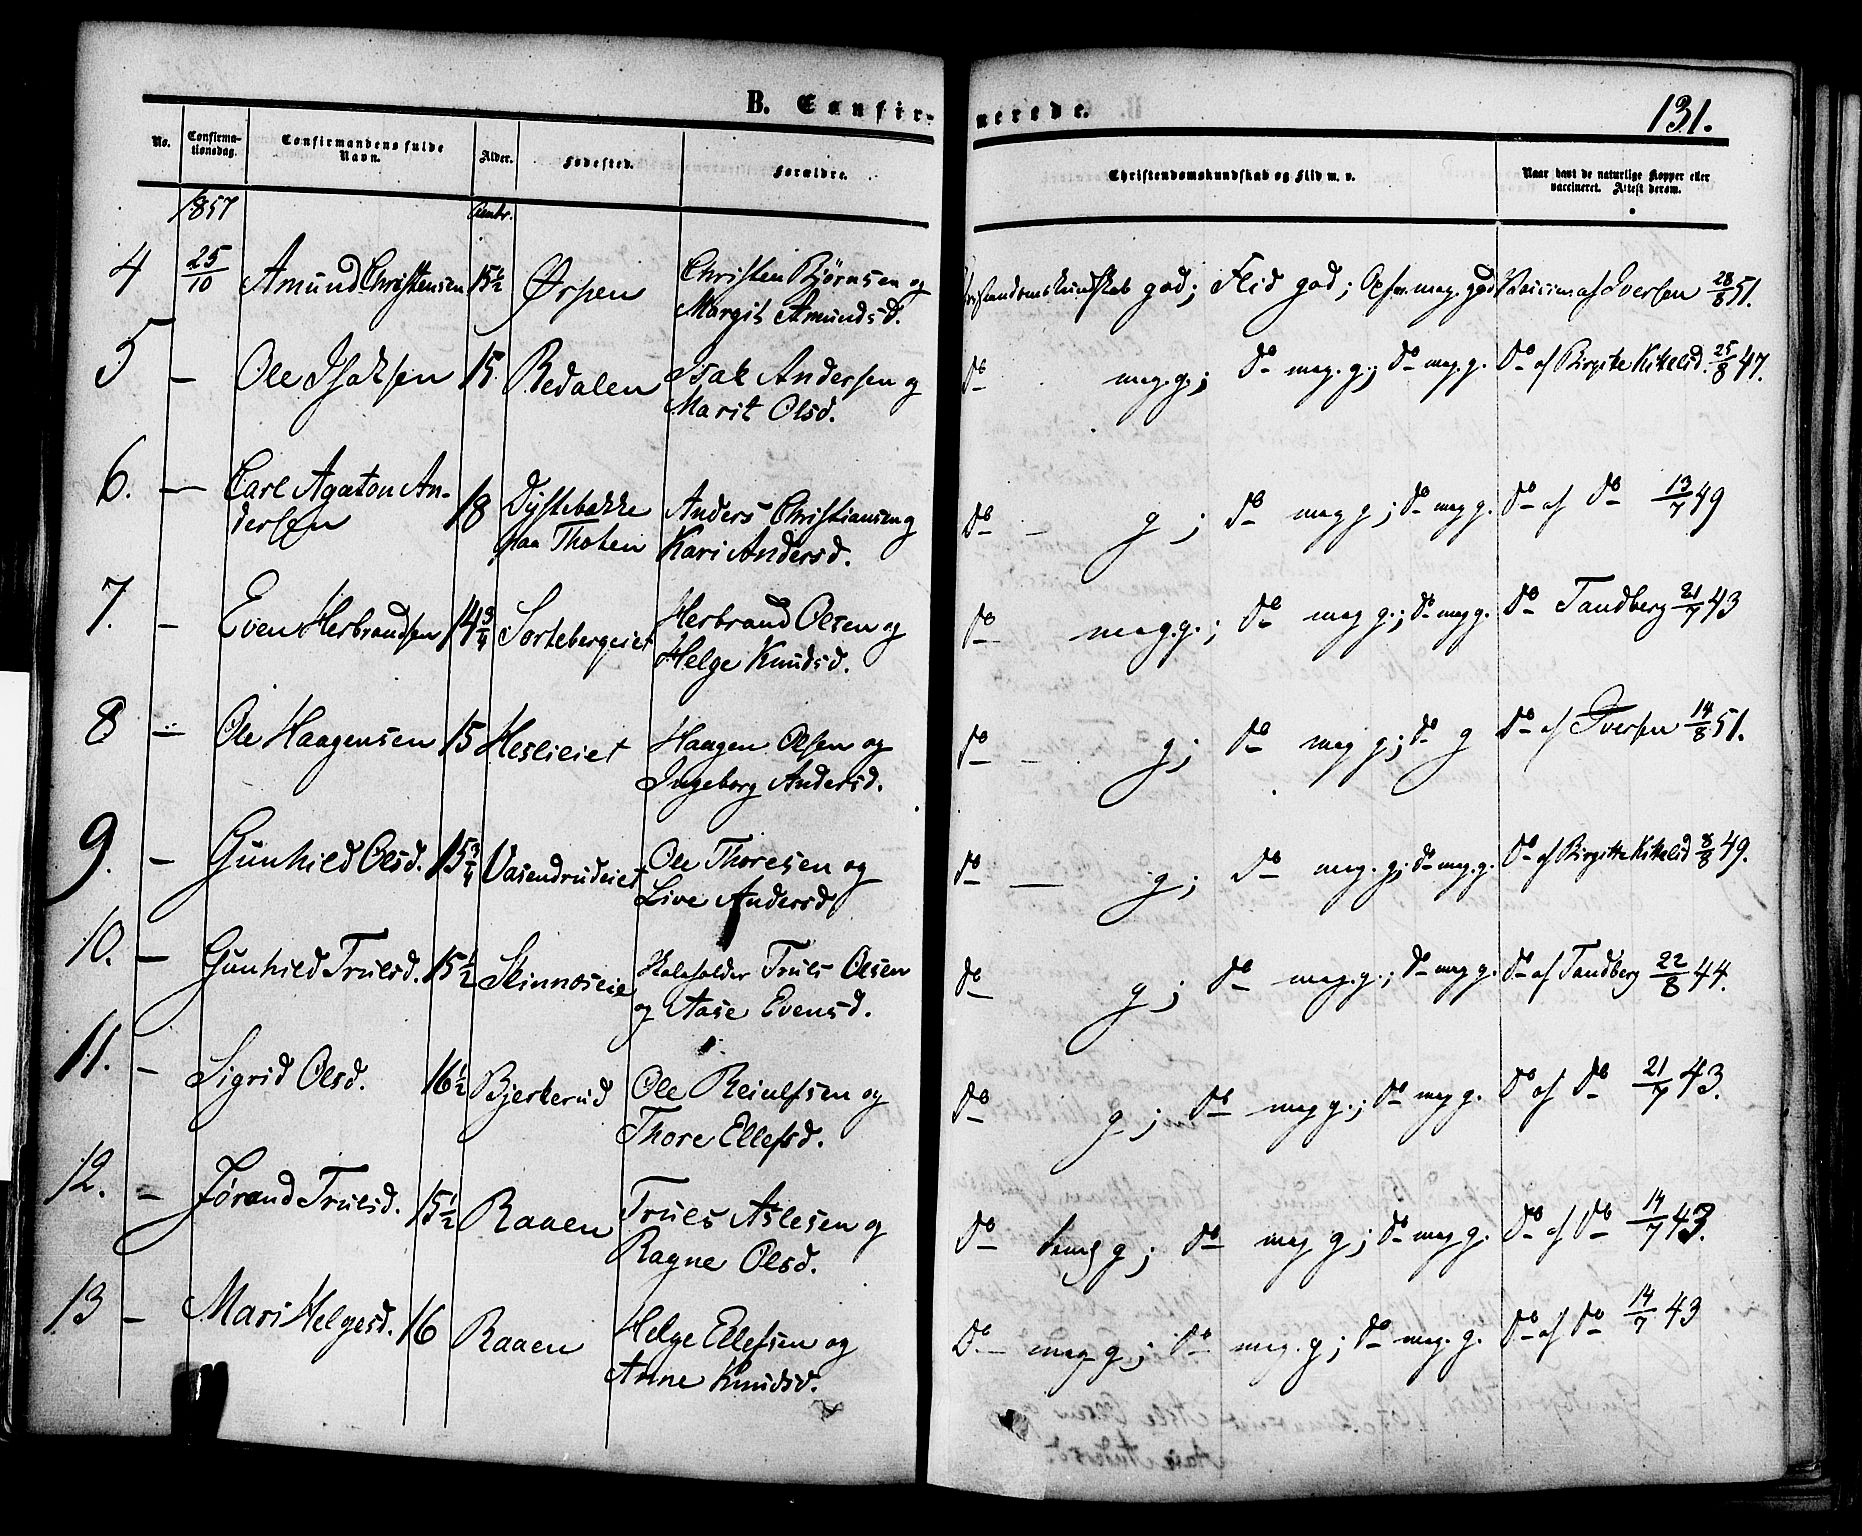 B. Confir-
merede.
131.
No.
Confirma-
tionsdag.
Confirmandens fulde
Navn.
Alder.
Fødested.
Forældre.
Christendomskundskab og Flid m. v.
Naar havt de naturlige Kopper eller
vaccineret. Attest derom.
1857
4 25/10 Amund Christensen 15 1/2 Ørpen Christen Bjørnsen og
Margit Amundsd.
Christendomskundskab god; Flid god; Opf. meg. god Vaccin. af Iversen 28/8 51.
5 — Ole Isaksen 15 Redalen Isak Andersen og
Marit Olsd.
do meg. g.; do meg. g.; do meg. g. do af Birgite Kikelid. 25/8 47.
6. — Carl Agaton An-
dersen 18 Dystebakke
paa Thoten Anders Christiansen og
Kari Andersd.
do — g; do meg g; do meg g. do af do 13/7 49
7. — Even Herbrandsen 14 3/4 Sortebergeiet Herbrand Olsen og
Helge Knudsd.
do meg. g.; do meg g.; do meg g. do Tandberg 21/7 43
8 — Ole Haagensen 15 Heslieiet Haagen Olsen og
Ingeborg Andersd.
do — g; do meg g; do g do af Iversen 14/8 51.
9. — Gunhild Olsd. 15 3/4 Vasendrudeiet Ole Thoresen og
Live Andersd
do — g; do meg. g; do meg. g. do af Birgitte Kikelid 8/8 49.
10. — Gunhild Trulsd. 15 1/2 Skinnoseie Truls Olsen
og Aase Evensd.
do g; do meg. g.; do meg g. do af Tandberg 22/8 44.
11. — Sigrid Olsd. 16 1/2 Bjerkerud Ole Reiulfsen og
Thore Ellefsd.
do g; do meg g.; do meg g. do af do 21/7 43.
12. — Jørand Trulsd. 15 1/2 Raaen Truls Aslesen og
Ragne Olsd.
do g; do meg g; do meg g. do af do 14/7 43.
13 — Mari Helgesd. 16 Raaen Helge Ellefsen og
Anne Knudsd.
Do — meg g; do meg. g; do meg. g. do af do 14/7 43